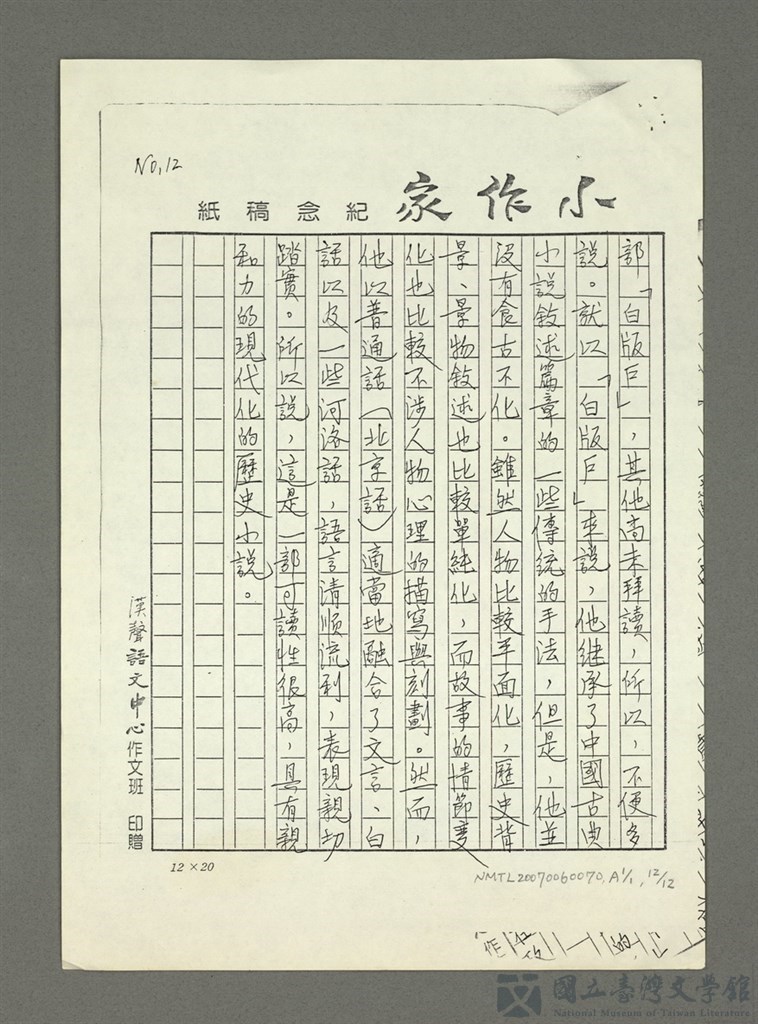 No,12
小作家 紀念稿紙
部「白版戶」，其他尚未拜讀，所以，不便多
說。就以「白版戶」來說，他繼承了中國古典
小說敘述篇章的一些傳統的手法，但是，他並
沒有食古不化。雖然人物比較平面化，歷史背
景、景物敘述也比較單純化，而故事的情節變
化也比較不涉人物心理的描寫與刻劃。然而，
他以普通話（北京話）適當地融合了文言、白
話以及一些河洛話，語言清順流利，表現親切
踏實。所以說，這是一部可讀性很高，具有親
和力的現代化的歷史小說。
漢聲語文中心作文班 印贈
12×20
NMTL20070060070,A1/1,12/12
國立臺灣文學館
National Museum of Taiwan Literature